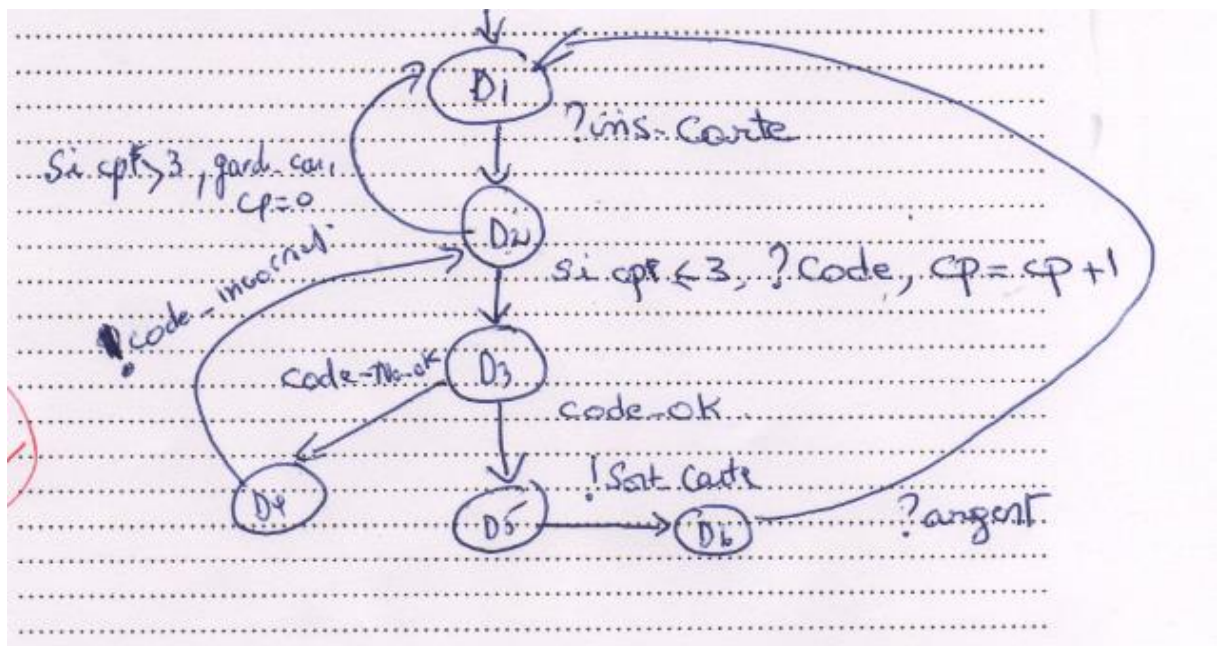 D1
?ins-carte
Si cpt>3, gard-car,
cp=0
D2
si cpt<3, ?Code, cp=cp+1
!code-incorrect
code-No-ok
D3
code-ok
!Sort Carte
D4
D5
D6
?argent